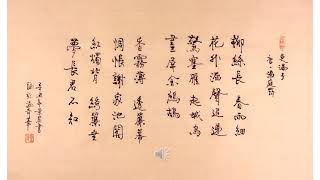 更漏子
唐·温庭筠
柳絲長春雨細
花外漏聲迢遞
驚塞雁起城烏
畫屏金鷓鴣
香霧薄透簾幕
惆悵謝家池閣
紅燭背繡簾垂
夢長君不知